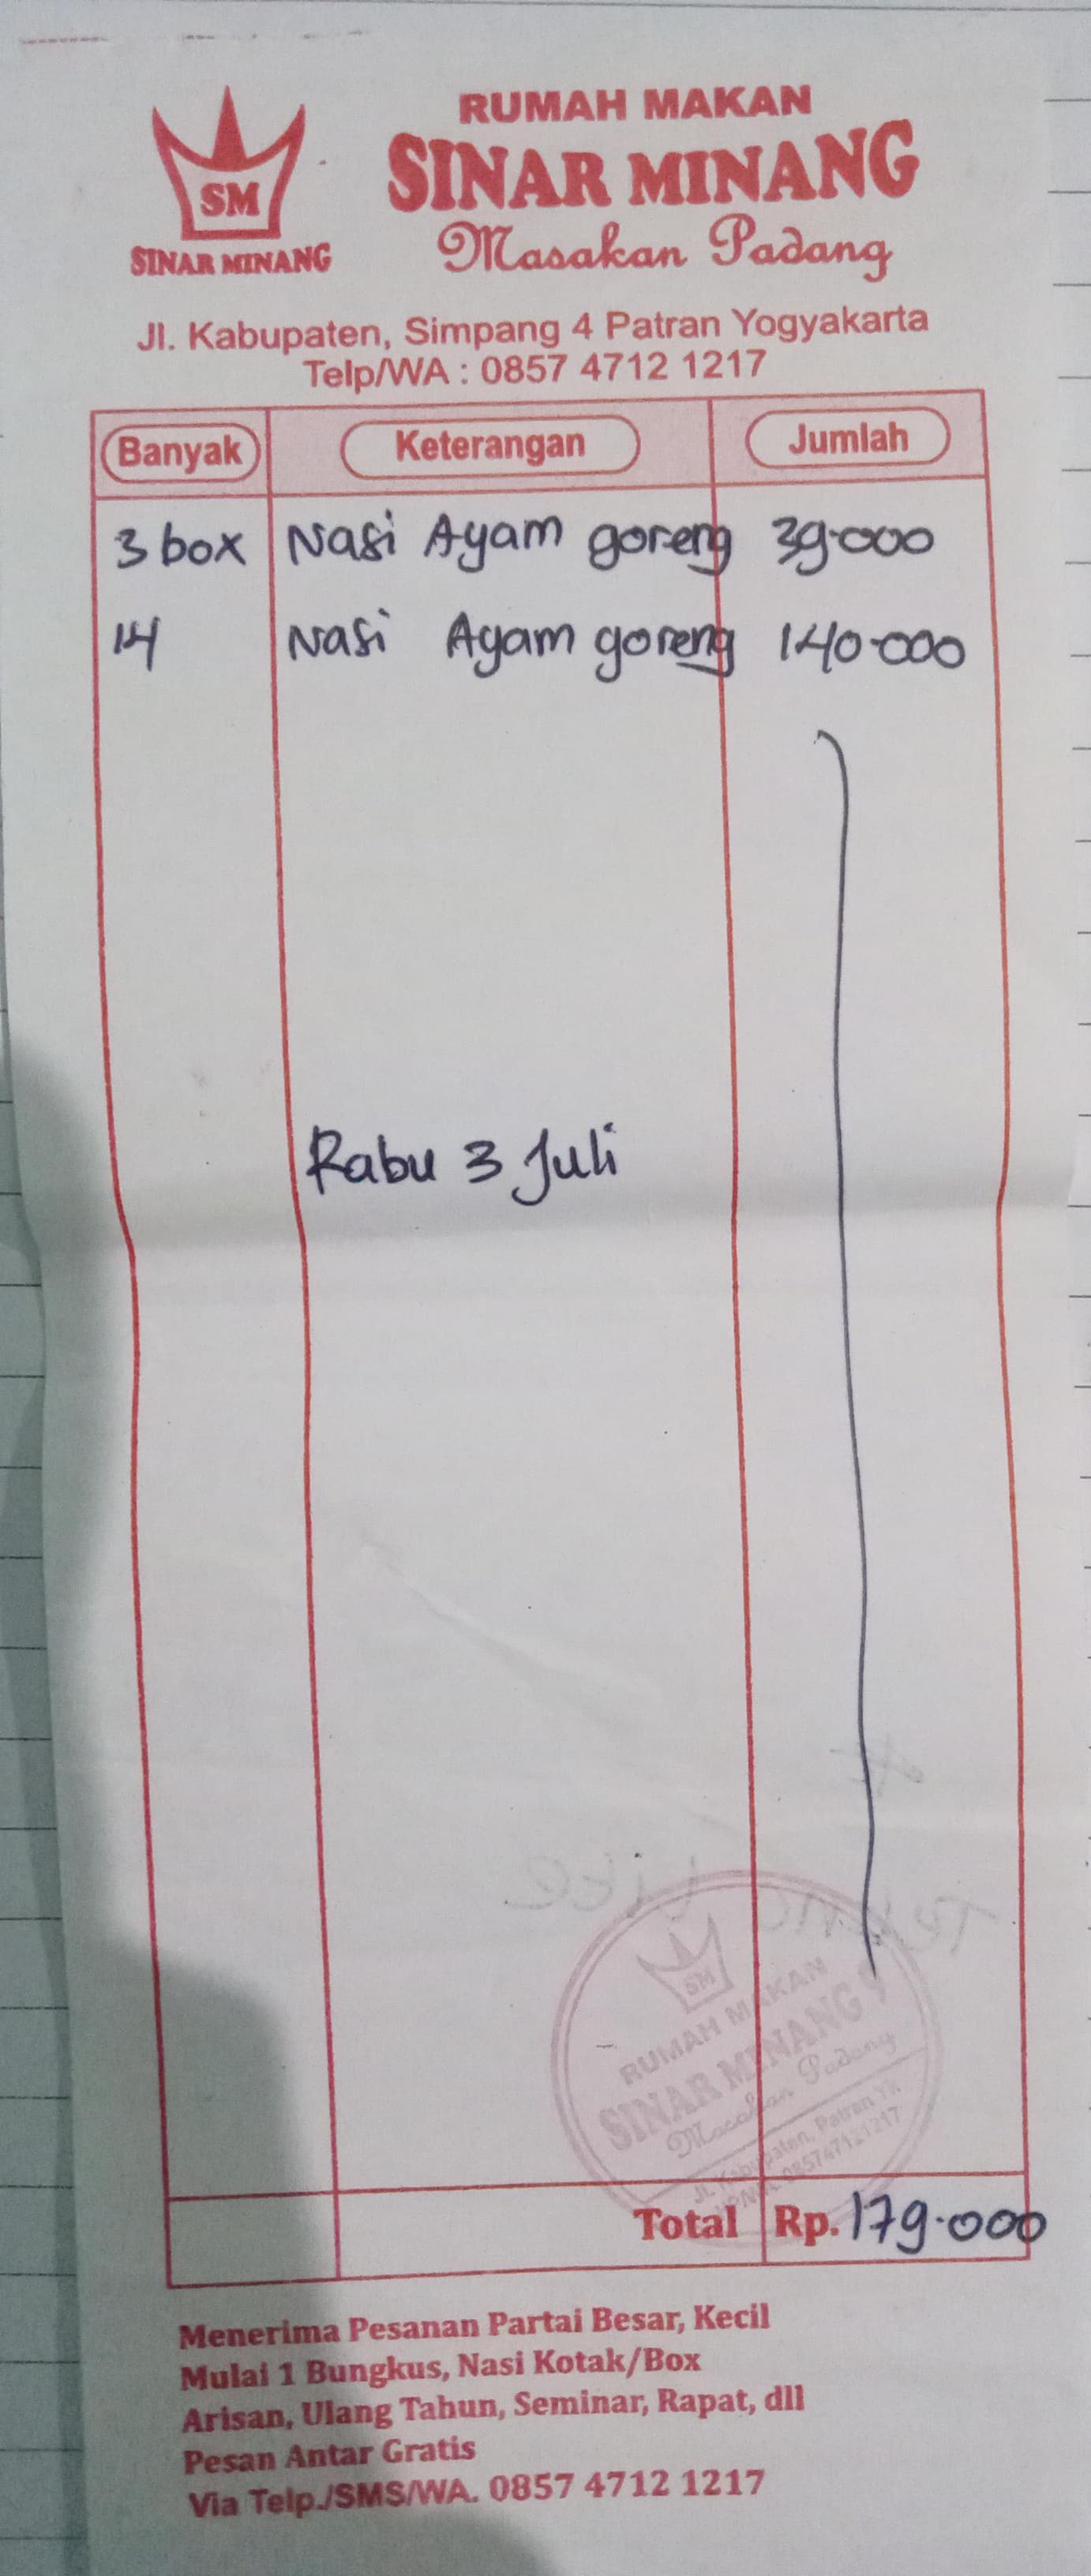 RUMAH MAKAN
SINAR MINANG
Masakan Padang
SM
SINAR MINANG
Jl. Kabupaten, Simpang 4 Patran Yogyakarta
Telp/WA : 0857 4712 1217
Banyak Keterangan Jumlah
3 box Nasi Ayam goreng 39.000
14 Nasi Ayam goreng 140.000
Rabu 3 Juli
SM
RUMAH MAKAN
SINAR MINANG
Masakan Padang
Jl. Kabupaten, Patran YK
085747121217
Total Rp. 179.000
Menerima Pesanan Partai Besar, Kecil
Mulai 1 Bungkus, Nasi Kotak/Box
Arisan, Ulang Tahun, Seminar, Rapat, dll
Pesan Antar Gratis
Via Telp./SMS/WA. 0857 4712 1217